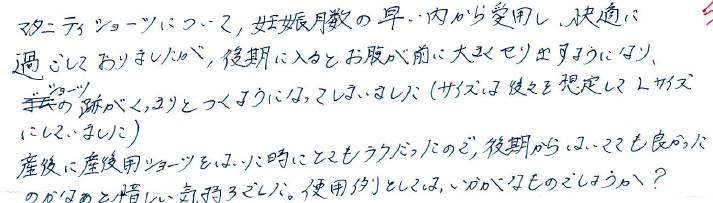 マタニティショーツについて、妊娠月数の早い内から愛用し、快適に
過ごしておりましたが、後期に入るとお腹が前に大きくせり出すようになり、
ショーツの跡がくっきりとつくようになってしまいました（サイズは後々を想定してLサイズ
にしていました）
産後に産後用ショーツをはいた時にとてもラクだったので、後期からはいてても良かった
のかなあと惜しい気持ちでした。使用例としては、いかがなものでしょうか？